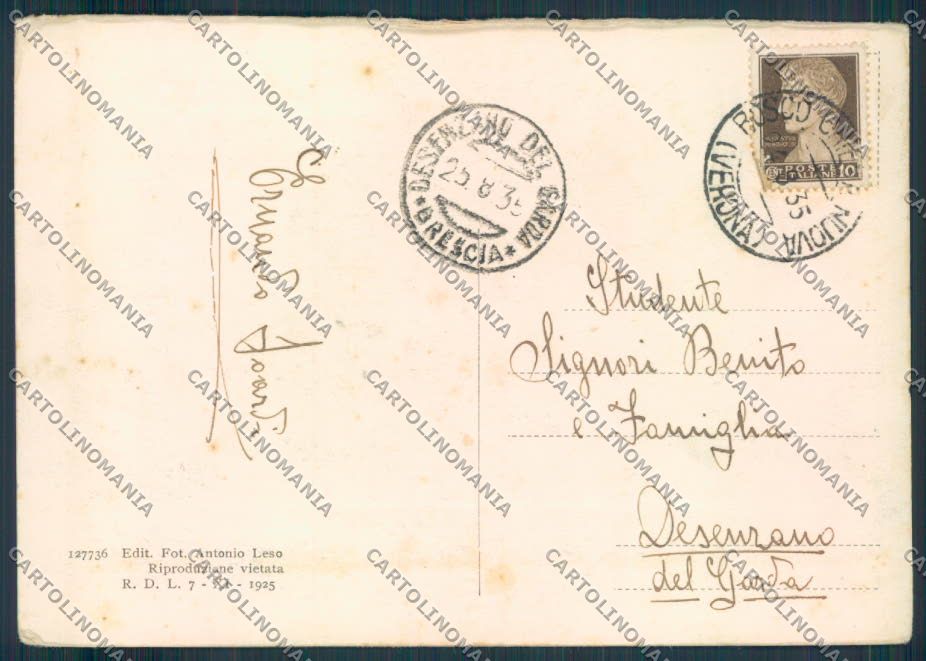 DESENZANO DEL GARDA
25.8.35
* BRESCIA *
BOSCO CHIESANUOVA
(VERONA)
35
POSTE
ITALIANE 10
Studente
Signori Benito
e Famiglia
Desenzano
del Garda
127736 Edit. Fot. Antonio Leso
Riproduzione vietata
R. D. L. 7 - XI - 1925
CARTOLINOMANIA